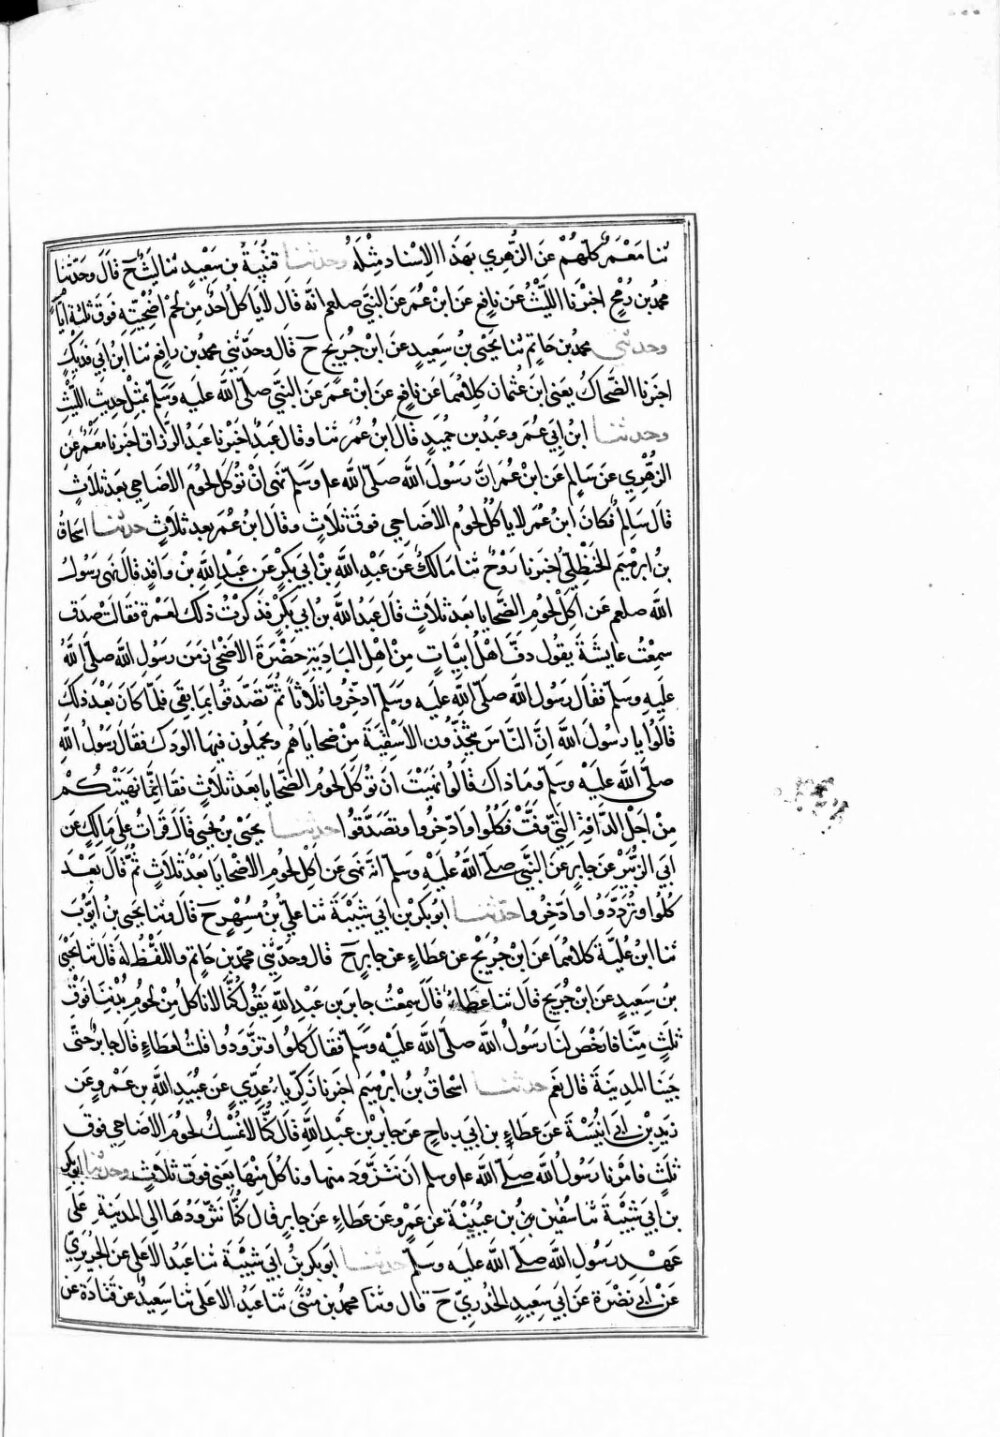 ثنا معمر كلهم عن الزهري بهذا الاسناد مثله وحدثنا قتيبة بن سعيد ثنا ليث ح قال وحدثنا
محمد بن رمح اخبرنا الليث عن نافع عن ابن عمر عن النبي صلعم انه قال لا ياكل احد من لحم اضحيته فوق ثلثة ايام
وحدثني محمد بن حاتم ثنا يحيى بن سعيد عن ابن جريج ح قال وحدثني محمد بن رافع ثنا ابن ابي فديك
اخبرنا الضحاك يعنى ابن عثمان كلاهما عن نافع عن ابن عمر عن النبي صلى الله عليه وسلم بمثل حديث الليث
وحدثنا ابن ابي عمر وعبد بن حميد قال ابن عمر ثنا وقال عبد اخبرنا عبد الرزاق اخبرنا معمر عن
الزهري عن سالم عن ابن عمر ان رسول الله صلى الله عله وسلم نهى ان توكل لحوم الاضاحي بعد ثلاث
قال سالم فكان ابن عمر لا ياكل لحوم الاضاحي فوق ثلاث وقال ابن عمر بعد ثلاث حدثنا اسحاق
بن ابرهيم الحنظلي اخبرنا روح ثنا مالك عن عبد الله بن ابي بكر عن عبد الله بن واقد قال نهى رسول
الله صلعم عن اكل لحوم الضحايا بعد ثلاث قال عبد الله بن ابي بكر فذكرت ذلك لعمرة فقالت صدق
سمعت عايشة يقول دف اهل ابيات من اهل البادية حضرة الاضحى زمن رسول الله صلى الله
عليه وسلم فقال رسول الله صلى الله عليه وسلم ادخروا ثلاثا ثم تصدقوا بما بقي فلما كان بعد ذلك
قالوا يا رسول الله ان الناس يتخذون الاسقية من ضحاياهم ويجملون فيها الودك فقال رسول الله
صلى الله عليه وسلم وما ذاك قالوا نهيت ان توكل لحوم الضحايا بعد ثلاث فقا انما نهيتكم
من اجل الدافة التي دفت فكلوا وادخروا وتصدقوا حدثنا يحيى بن يحيى قال قرات على مالك عن
ابي الزبير عن جابر عن النبي صلى الله عليه وسلم انه نهى عن اكل لحوم الاضحايا بعد ثلاث ثم قال بعد
كلوا وتزودوا وادخروا حدثنا ابو بكر بن ابي شيبة ثنا علي بن مسهر ح قال وثنا يحيى بن ايوب
ثنا ابن علية كلاهما عن ابن جريج عن عطاء عن جابر ح قال وحدثني محمد بن حاتم واللفظ له قال ثنا يحيى
بن سعيد عن ابن جريج قال ثنا عطاء قال سمعت جابر بن عبد الله يقول كنا لا ناكل من لحوم بدننا فوق
ثلث منا فارخص لنا رسول الله صلى الله عليه وسلم فقال كلوا وتزودوا قلت لعطاء قال جابر حتى
جينا المدينة قال نعم حدثنا اسحاق بن ابرهيم اخبرنا زكرياء بن عدي عن عبيد الله بن عمرو عن
زيد بن ابي انيسة عن عطاء بن ابي رباح عن جابر بن عبد الله قال كنا لا نمسك لحوم الاضاحي فوق
ثلث فامرنا رسول الله صلى الله عله وسلم ان نتزود منها وناكل منها يعني فوق ثلاث وحدثنا ابو بكر
بن ابي شيبة ثنا سفين بن عيينة عن عمرو عن عطاء عن جابر قال كنا نتزودها الى المدينة على
عهد رسول الله صلى الله عليه وسلم حدثنا ابو بكر بن ابي شيبة ثنا عبد الاعلى عن الجريري
عن ابي نضرة عن ابي سعيد الخدري ح قال وثنا محمد بن مثنى ثنا عبد الاعلى ثنا سعيد عن قتادة عن